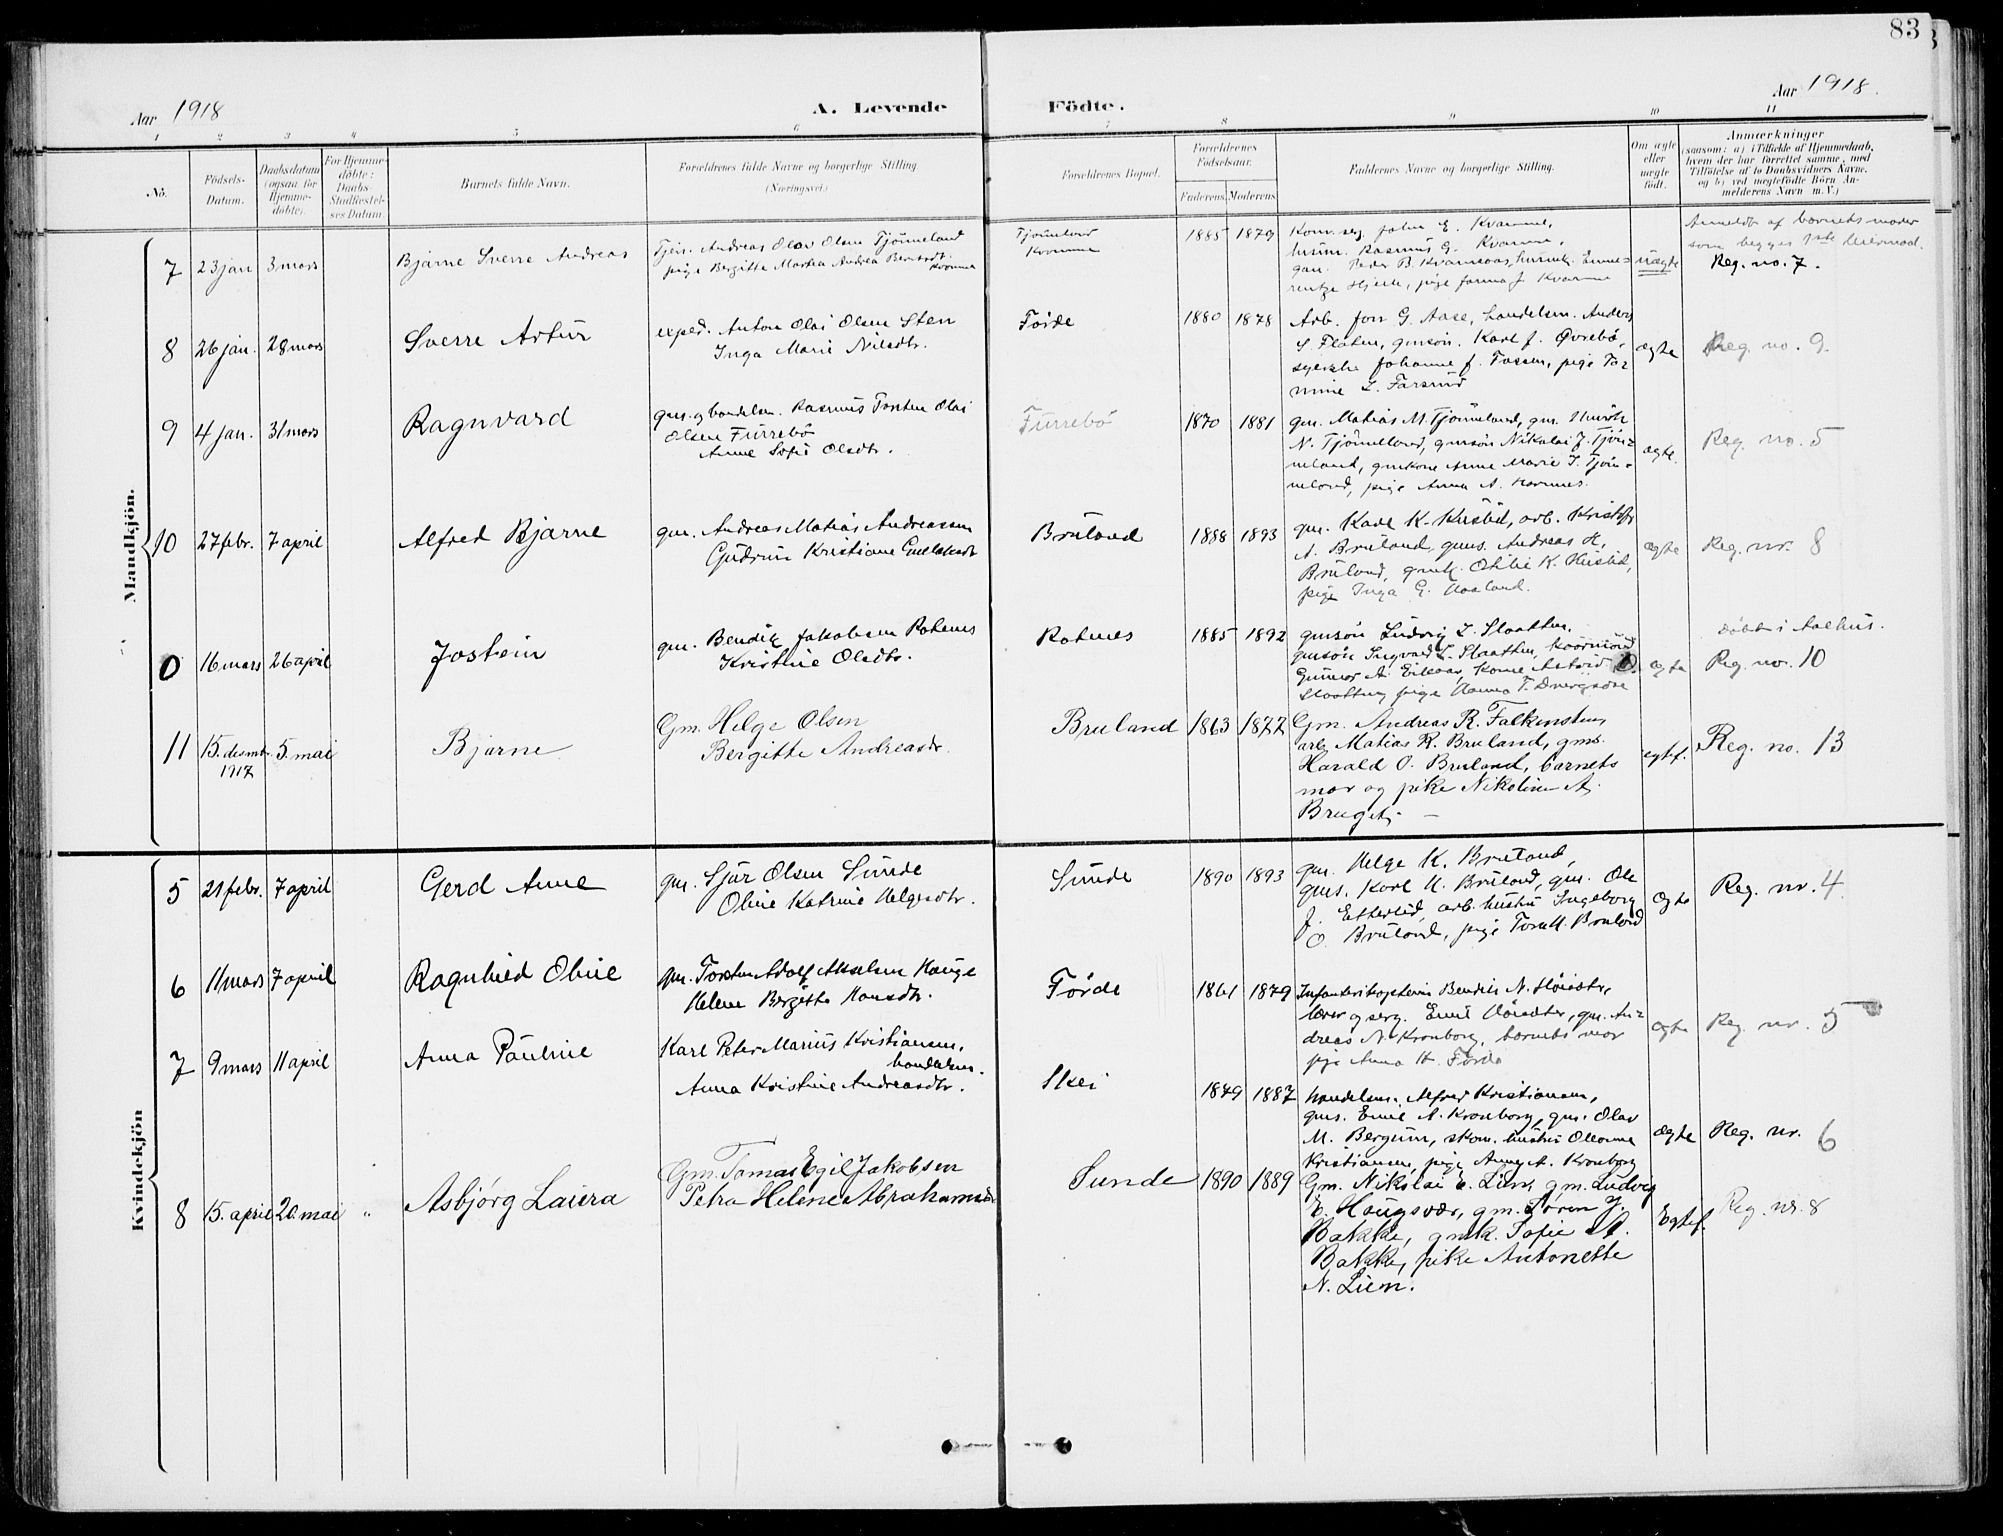 83
Aar 1918
A. Levende
Födte.
Aar 1918.
1 2 3 4 5 6 7 8 9 10 11
No.
Födsels-Datum.
Daabsdatum (ogsaa for Hjemme-döbte).
For Hjemme-döbte: Daabs-Stadfæstel-ses Datum
Barnets fulde Navn.
Forældrenes fulde Navne og borgerlige Stilling
(Næringsvei.)
Forældrenes Bopæl.
Forældrenes Födselsaar.
Faderens. Moderens.
Faddernes Navne og borgerlige Stilling.
Om ægte eller uægte födt.
Anmærkninger
(saasom: a) i Tilfælde af Hjemmedaab,
hvem der har forrettet samme, med
Tilföielse af to Daabsvidners Navne,
og b) ved uægtefödte Börn An-
melderens Navn m. V.)
Mandkjön.
7 23 jan 3 mars Bjarne Sverre Andreas
Andreas Olav Olsen Tjönneland
pige Bergitte Martea Andrea Berntsdtr. Kvamme
Tjönneland
Kvamme
1885 1879
John E. Kvamme,
Rasmus G. Kvamme,
Peder B.
pige J. Kvamme
uægte
Anmeldt af barnets moder
som begges 1ste
Reg. no. 7.
8 26 jan. 28 mars Sverre Artur
exped. Anton Olai Olsen Sten
Inga Marie Nilsdtr.
Förde
1880 1878
Arb. G. Aase, handelsm. Anders
S Flaten, gmsön. Karl J. Øvrebö,
Johanne J. pige
L. Farsund
ægte
Reg. no. 9.
9 4 jan. 31 mars Ragnvard
gm. og handelsm. Rasmus Torsten Olai
Olsen Furrebö
Anne Sofie Olsdtr.
Furrebö
1870 1881
gm. Matias M. Tjönneland, gm.
N. Tjönneland, gmsön Nikolai J. Tjön-
neland, gmkone Anne Marie J. Tjön-
neland, pige Anna A.
ægte.
Reg. no. 5
10 27 febr. 7 april Alfred Bjarne
gm. Andreas Matias Andreassen
Gudrun Kristiane
Bruland
1888 1893
gm. Karl K. Huslid, arb. Kristofer
A. Bruland, gms. Andreas H.
Bruland, gmk. Otilie K. Huslid,
pige Inga G.
ægte
Reg. nr. 8
0 16 mars 26 april Jostein
gm. Bendik Jakobsen Rotnes
Kristine Olsdtr.
Rotnes
1885 1892
gmsön Ludvig L. Slaatten,
gmsön Ingvald L. Slaatten,
Gunnar A. Eikaas, kone Astrid O.
Slaatten, pige Hanna T.
ægte
Döbt i Aalhus.
Reg. no. 10
11 15. desmbr. 1917 5. mai Bjarne
Gm. Helge Olsen
Bergitte Andreasdtr.
Bruland
1863 1877
Gm. Andreas R. Falkensten,
arb. Matias R. Bruland, gms.
Harald O. Bruland, barnets
mor og pike Nikoline A.
Bruget. —
egtef.
Reg. no. 13
Kvindekjön
5 21 febr. 7 april Gerd Anne
gm. Sjur Olsen Sunde
Oline Katrine Helgesdtr.
Sunde
1890 1893
gm. Helge K. Bruland,
gms. Karl H. Bruland, gm. Ole
J. Etterlid, arb. hustru Ingeborg
O. Bruland, pige Bruland
ægte
Reg. nr. 4
6 11 mars 7 april Ragnhild Oline
gm. Torsten Adolf Akselsen Hauge
Helene Bergitte Hansdtr.
Førde
1861 1879
Infanterikaptein Bendik N.
lærer og serg. Emil gm. An-
dreas N. Kronborg, barnets mor
pige Anna H. Førde
ægte
Reg. nr. 5
7 9 mars 11 april Anna Pauline
Karl Peter Marius Kristiansen,
handelsm.
Anna Kristine Andreasdtr.
Skei
1879 1887
handelsm. Alfred Kristiansen,
gms. Emil A. Kronborg, gm. Olav
M. Bergum, skom. hustru
Kristiansen, pige Anny A. Kronborg
ægte
Reg. nr. 6
8 15. april 20. mai " Asbjørg Laura
Gm. Tomas Egil Jakobsen
Petra Helene Abrahamsdtr
Sunde
1890 1889
Gm. Nikolai E. Lien, gm. Ludvig
E. Haugsvær, gm. Søren J.
Bakke, gmk. Sofie A.
Bakke, pike Antonette
N. Lien.
Egtef.
Reg. nr. 8